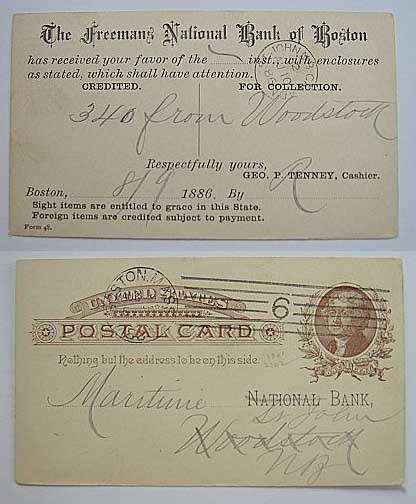 The Freemans National Bank of Boston
has received your favor of the inst., with enclosures
as stated, which shall have attention.
CREDITED. FOR COLLECTION.
340 from Woodstock
Respectfully yours,
R
GEO. P. TENNEY, Cashier.
Boston, 8/9 1886, By
Sight items are entitled to grace in this State.
Foreign items are credited subject to payment.
Form 48.
BOSTON, MASS
6
UNITED STATES
POSTAL CARD
Nothing but the address to be on this side.
Maritime NATIONAL BANK,
St John
Woodstock
NB